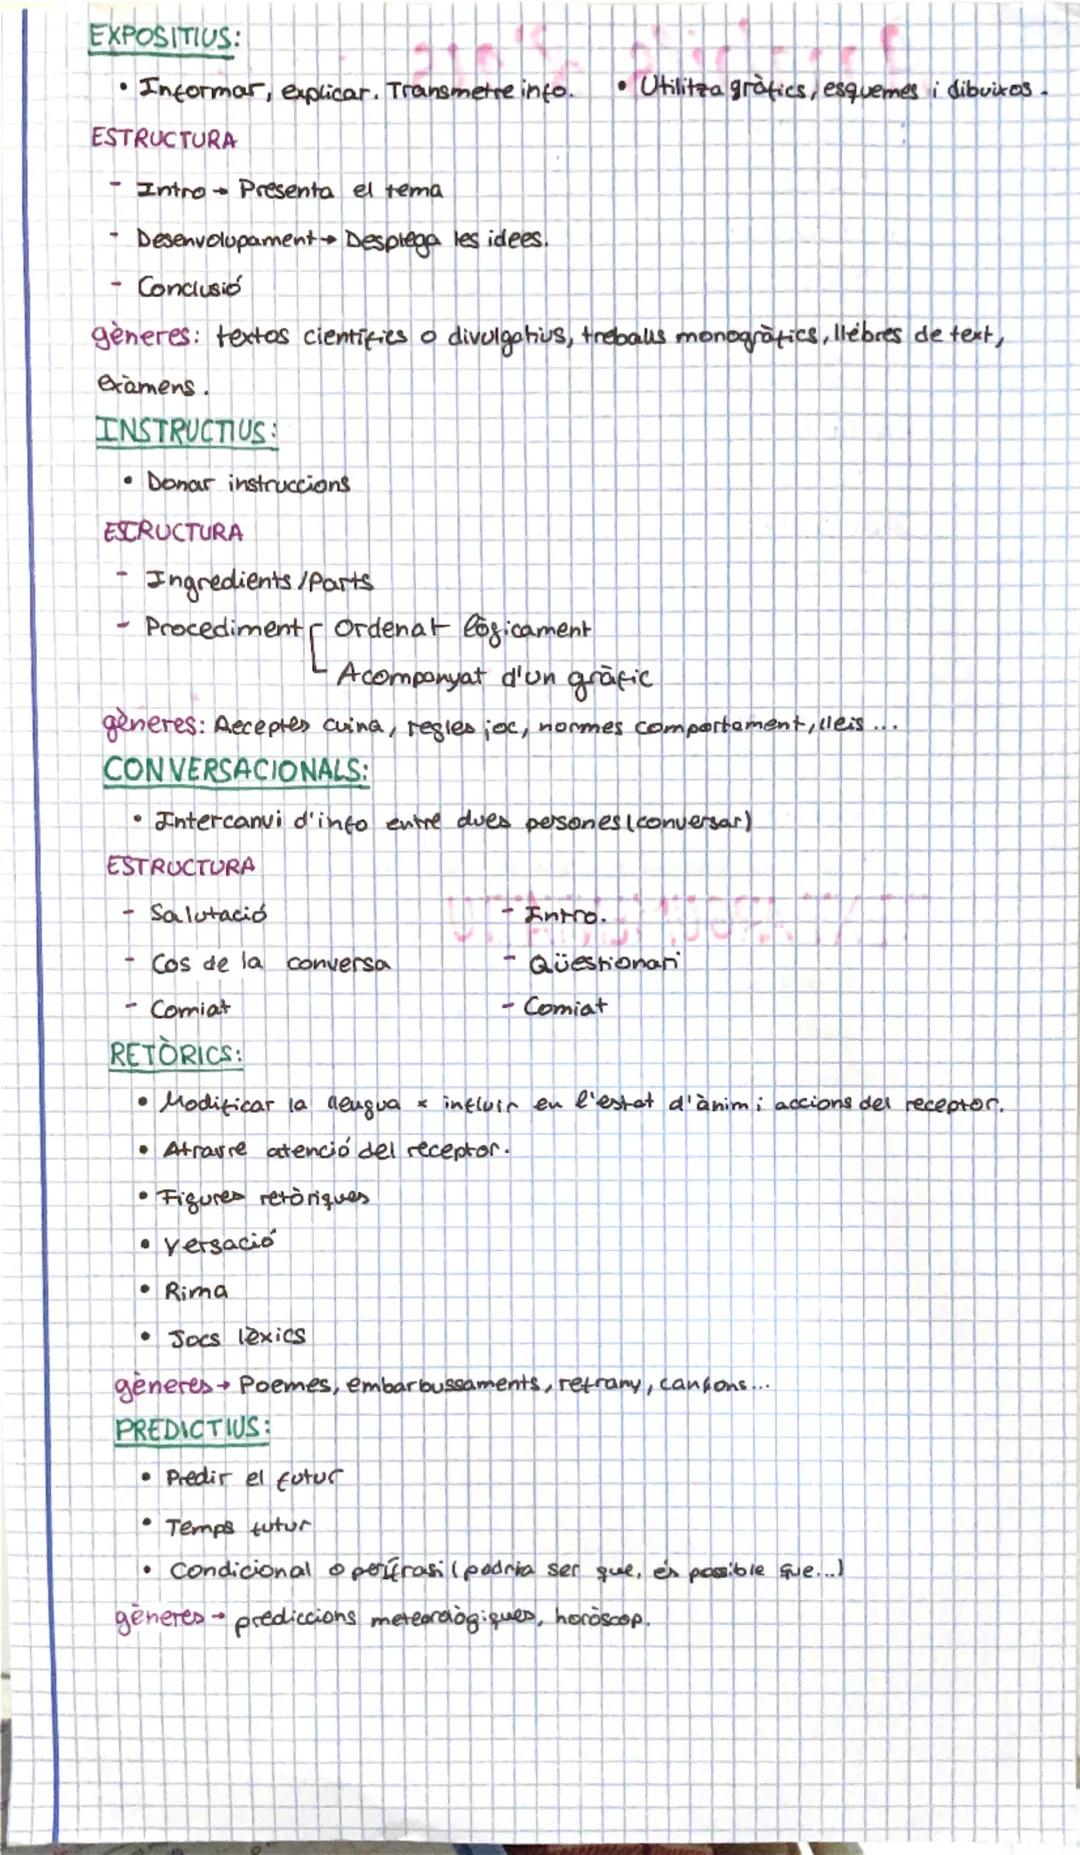 EXPOSITIUS:
• Informar, explicar. Transmetre info. • Utilitza gràfics, esquemes i dibuixos.
ESTRUCTURA
- Intro → Presenta el tema
- Desenvolupament → Desplega les idees.
- Conclusió
gèneres: textos científics o divulgatius, treballs monogràfics, llibres de text,
exàmens.
INSTRUCTIUS:
• Donar instruccions
ESTRUCTURA
- Ingredients/Parts
- Procediment Ordenat lògicament
Acompanyat d'un gràfic
gèneres: Receptes cuina, regles joc, normes comportament, lleis...
CONVERSACIONALS:
• Intercanvi d'info entre dues persones (conversar)
ESTRUCTURA
- Salutació - Intro.
- Cos de la conversa - Qüestionari
- Comiat - Comiat
RETÒRICS:
• Modificar la llengua x influir en l'estat d'ànim i accions del receptor.
• Atraure atenció del receptor.
• Figures retòriques
• Versació
• Rima
• Jocs lèxics
gèneres → Poemes, embarbussaments, refrany, cançons...
PREDICTIUS:
• Predir el futur
• Temps futur
• Condicional o perífrasi (podria ser que, és possible que...)
gèneres → prediccions meteorològiques, horòscop.